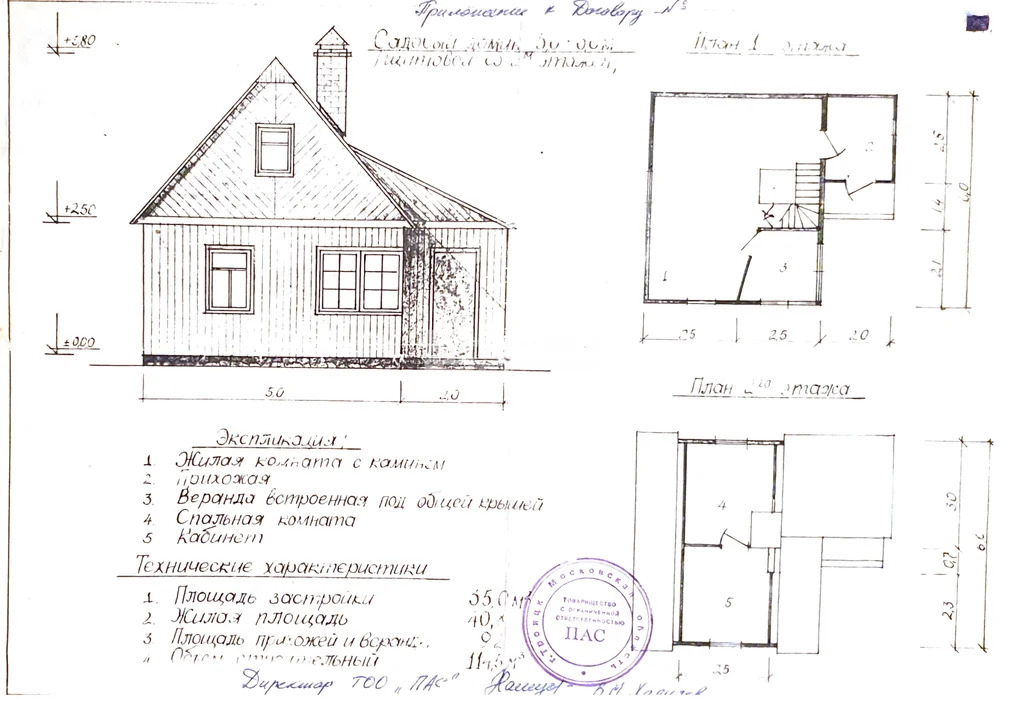 Приложение к Договору №
Садовый домик
этажем,
План 1 этажа
+5,80
+2.50
±0,00
5,0
2,0
2
1
3
2,5
1,4
2,1
6,0
2,5
2,5
2,0
План 2го этажа
4
5
3,0
0,7
2,3
6,0
2,5
Экспликация:
1. Жилая комната с камином
2. Прихожая
3. Веранда встроенная под общей крышей
4. Спальная комната
5 Кабинет
Технические характеристики
1. Площадь застройки 35,0 м²
2. Жилая площадь 40,
3 Площадь прихожей и веранд.
строительный м³
г. Троицк Московская область
ТОВАРИЩЕСТВО
С ОГРАНИЧЕННОЙ
ОТВЕТСТВЕННОСТЬЮ
ПАС
Директор ТОО „ПАС"